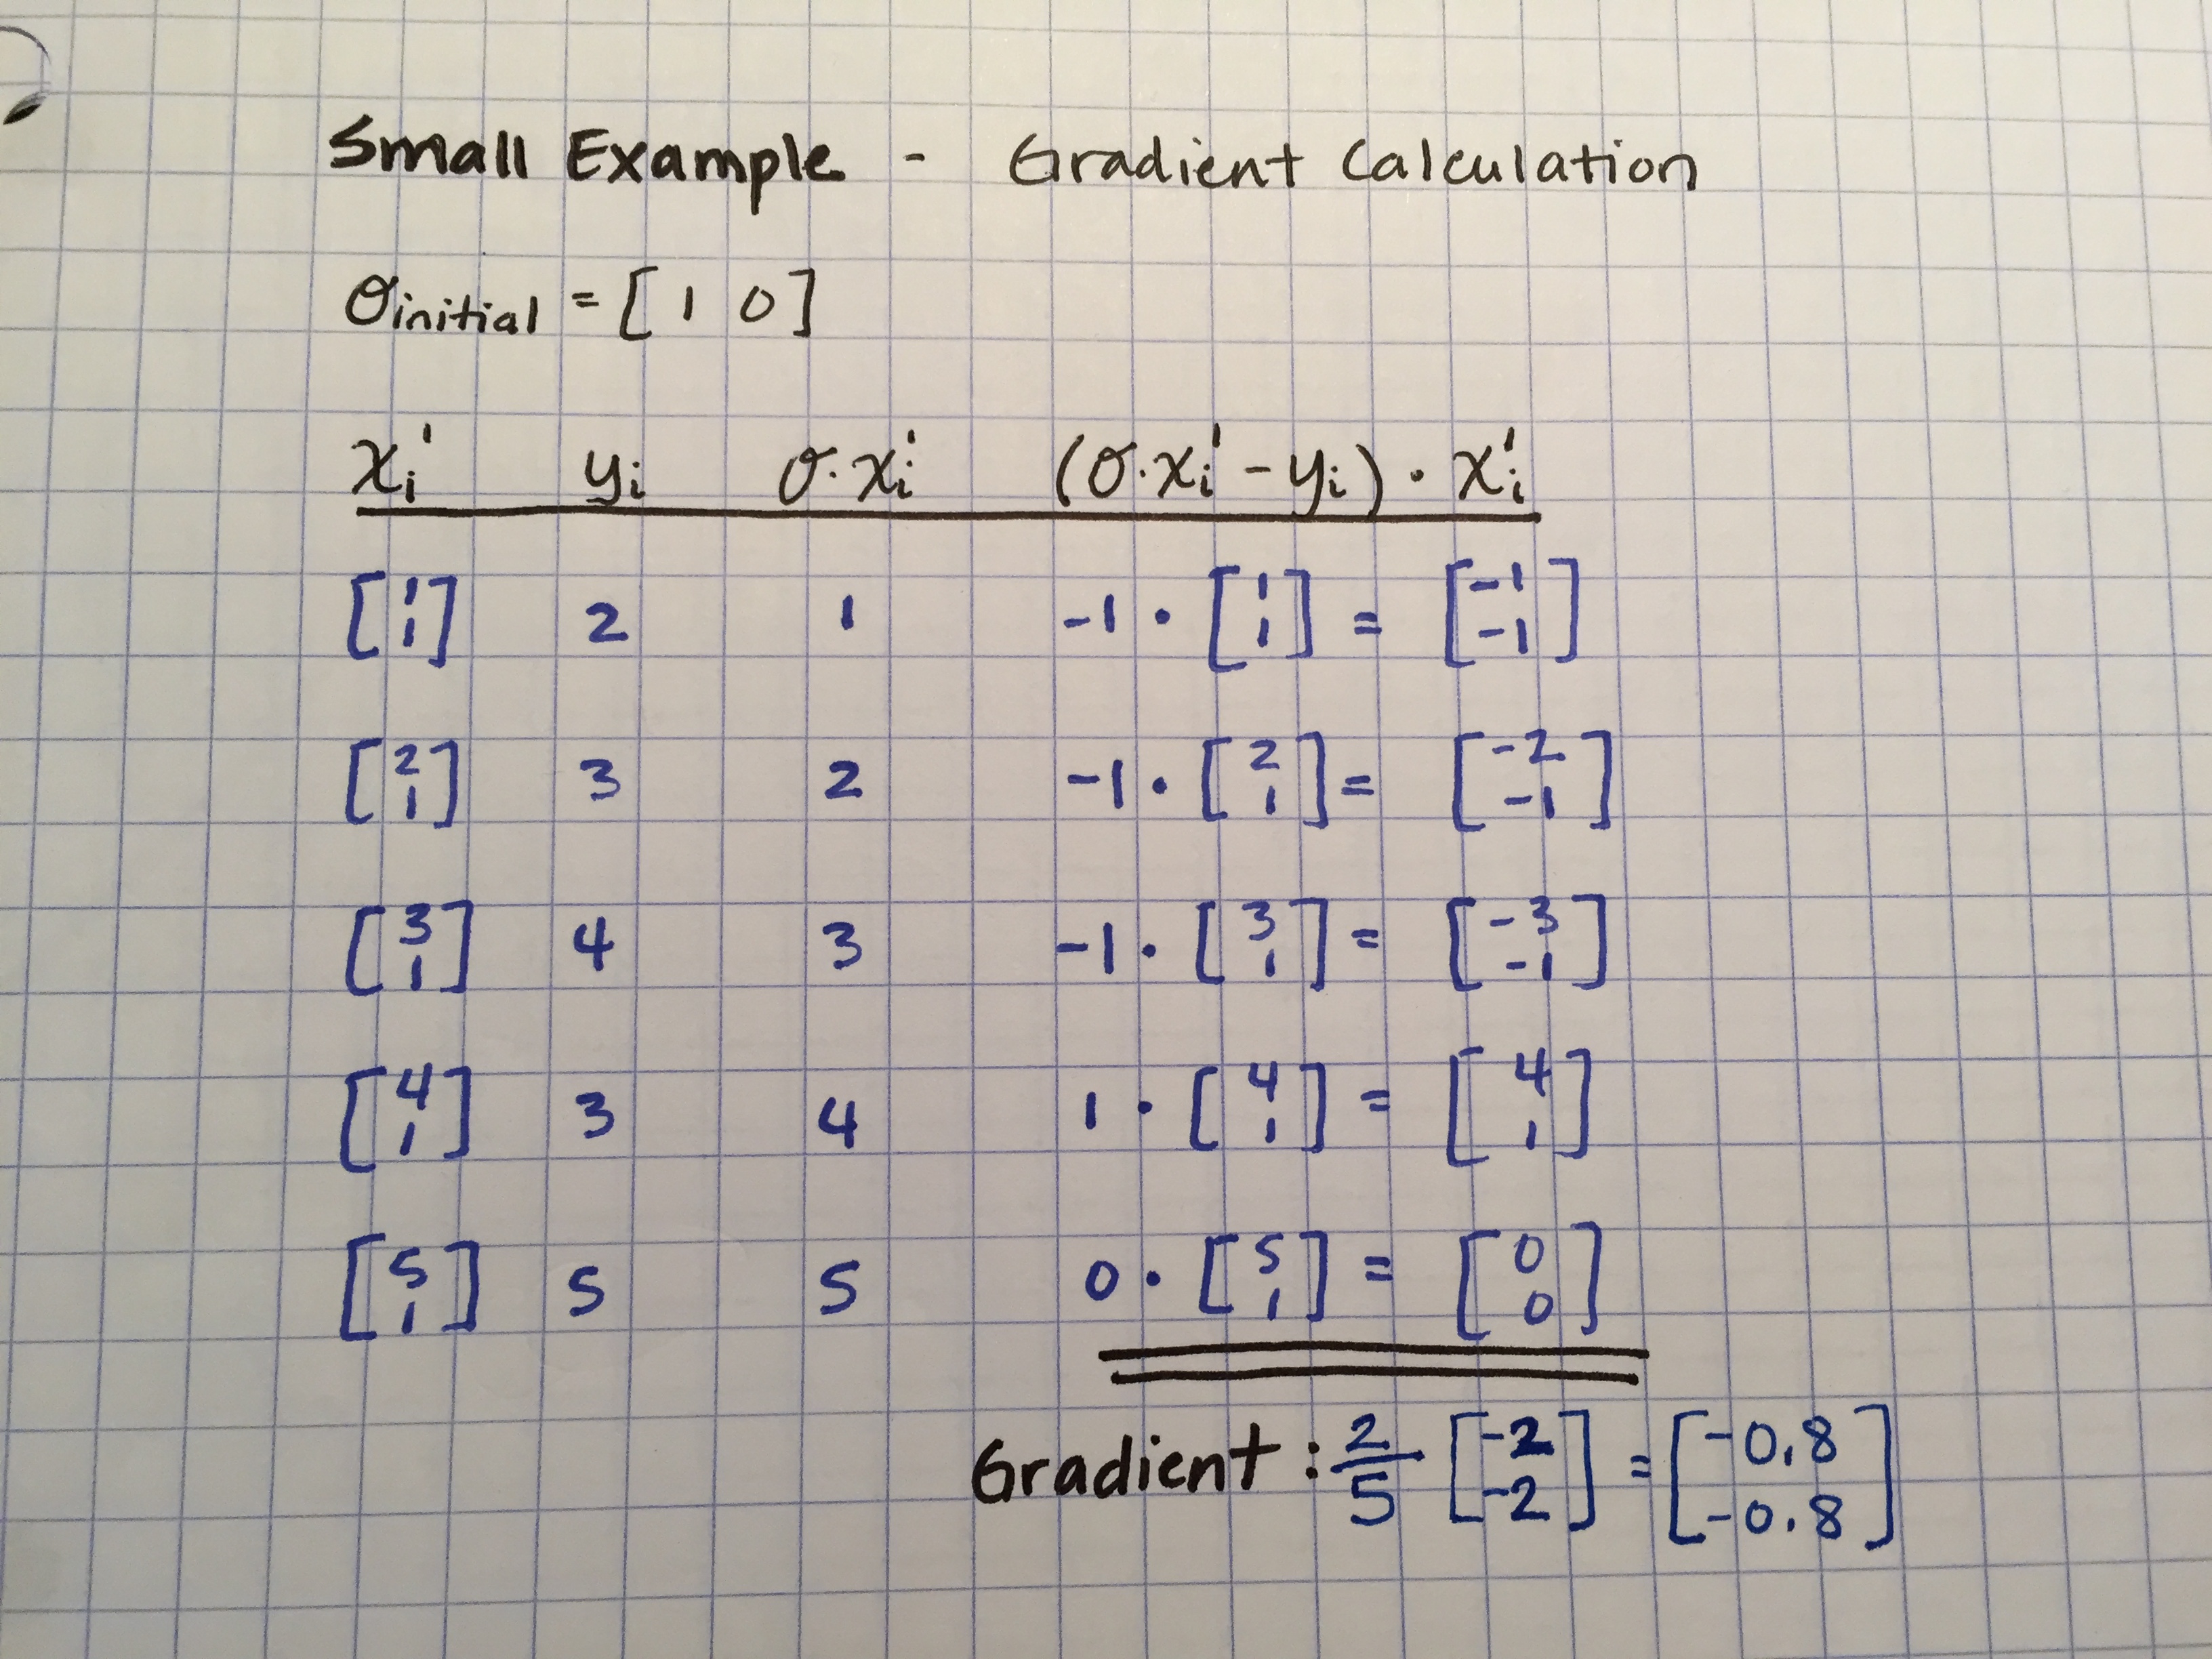 Small Example - Gradient Calculation
θinitial = [ 1 0 ]
xᵢ' yᵢ θ·xᵢ' (θ·xᵢ' - yᵢ) · xᵢ'
[1 1] 2 1 -1 · [1 1] = [-1 -1]
[2 1] 3 2 -1 · [2 1] = [-2 -1]
[3 1] 4 3 -1 · [3 1] = [-3 -1]
[4 1] 3 4 1 · [4 1] = [4 1]
[5 1] 5 5 0 · [5 1] = [0 0]
Gradient : 2/5 [-2 -2] = [-0.8 -0.8]